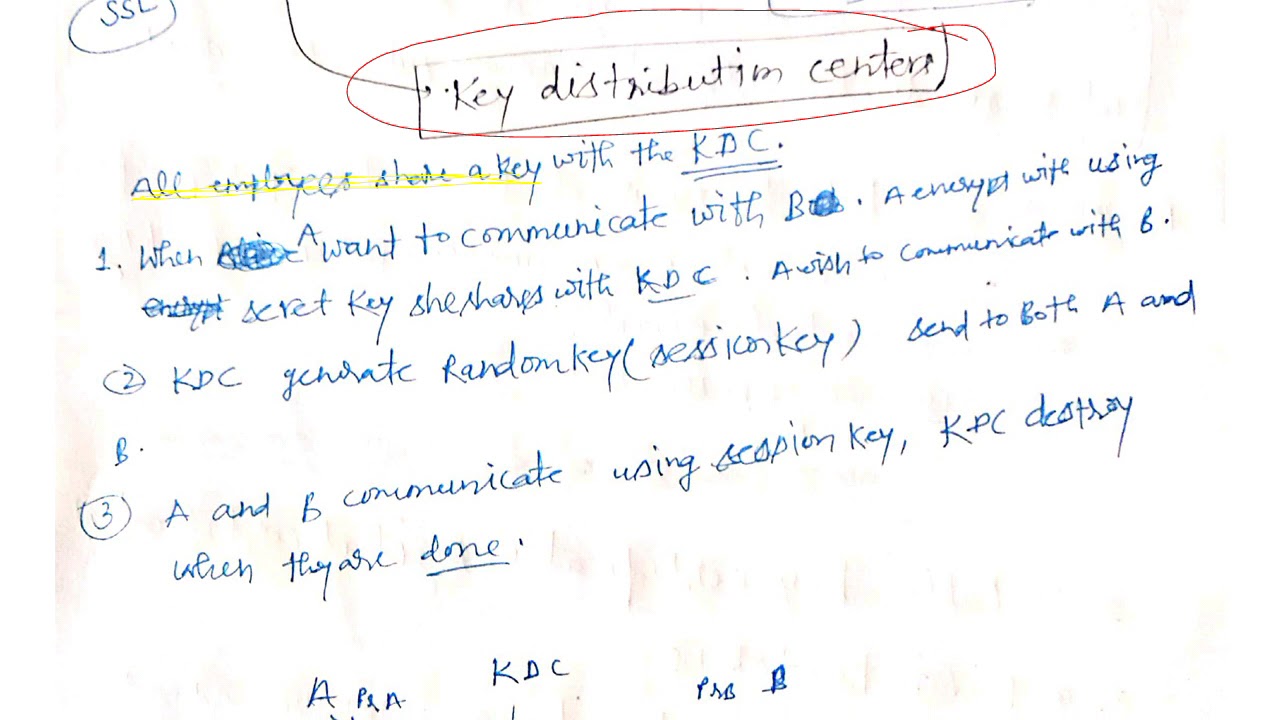 SSL
Key distribution centers
All employees share a key with the KDC.
1. When A want to communicate with B. A encrypt with using
secret key she shares with KDC. A wish to communicate with B.
(2) KDC generate Random key (session key) send to Both A and
B.
(3) A and B communicate using session key, KDC destroy
when they are done.
KDC
A PRA PRB B